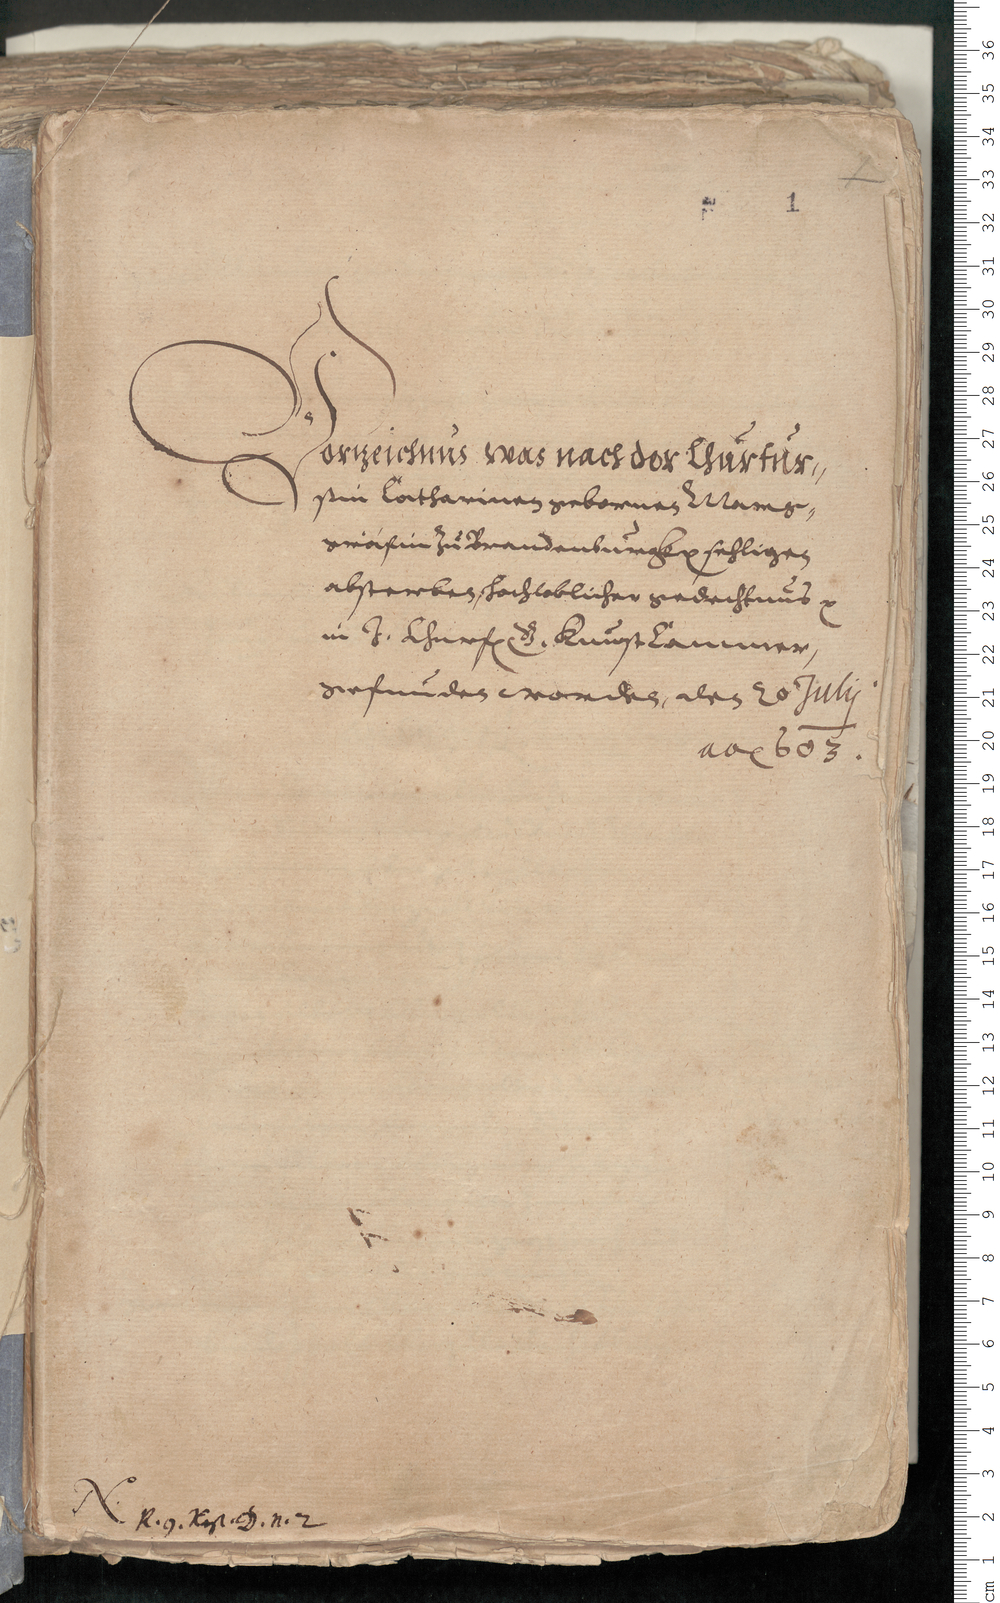 1
Vortzeichnus was nach der Churfür„
stin Catharinen gebornen Marg„
gräfin zu Brandenburgk sehligen
absterben, hochloblicher gedechtnus
in J. Churf. G. Kunst Cammer,
gefunden worden, den 20 Julij
ao 603.
N.
R. 9. D. n. 2
36
35
34
33
32
31
30
29
28
27
26
25
24
23
22
21
20
19
18
17
16
15
14
13
12
11
10
9
8
7
6
5
4
3
2
1
cm